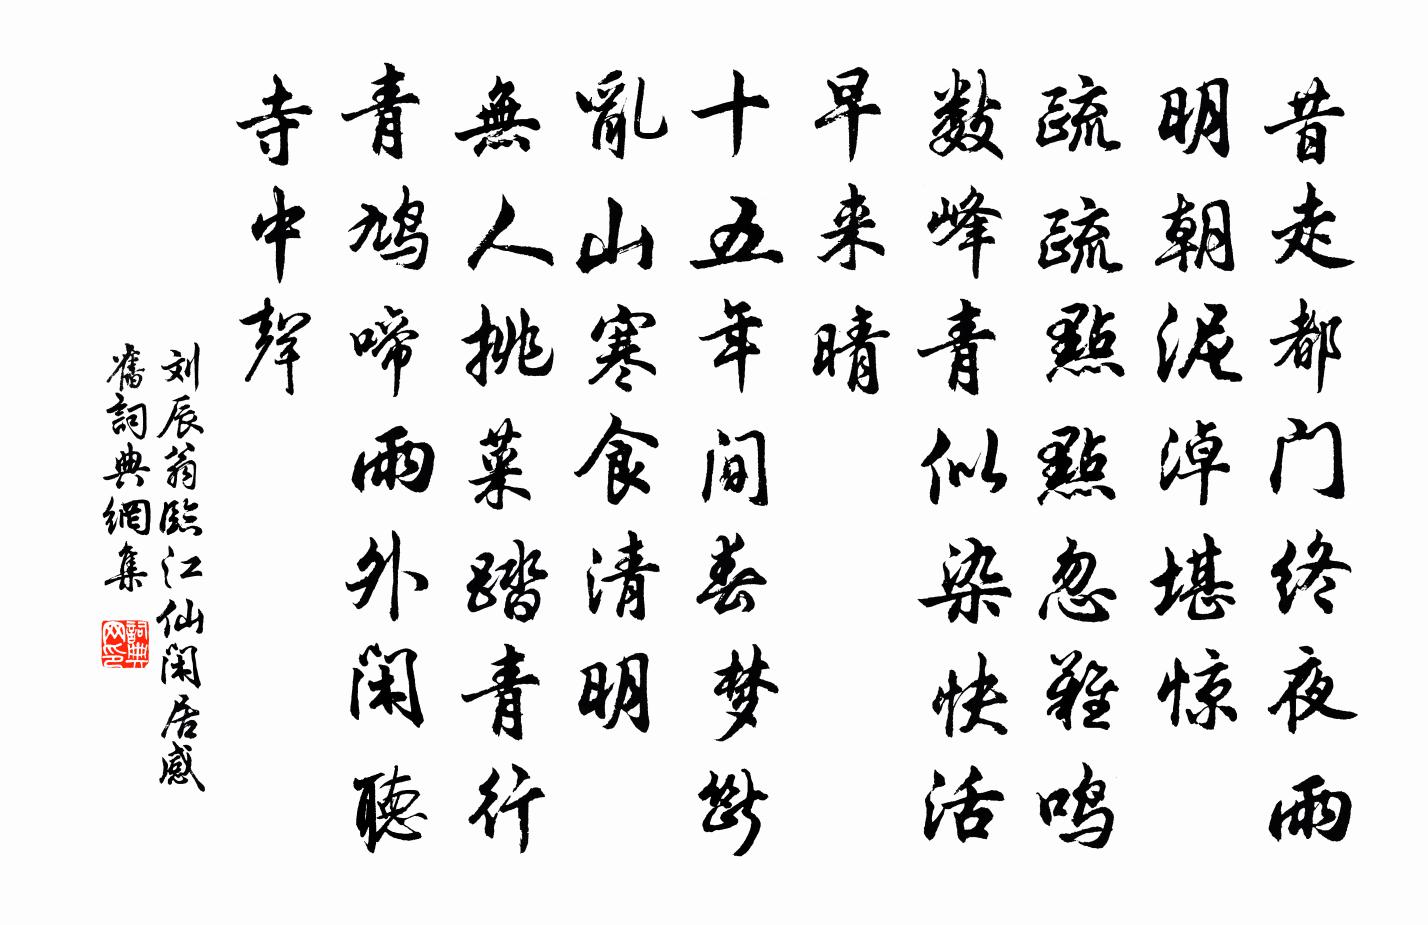 昔走都门终夜雨
明朝泥淖堪惊
疏疏點點忽難鸣
数峰青似染快活
早来晴
十五年间春梦断
亂山寒食清明
無人挑菜踏青行
青鸠啼雨外闲聽
寺中聲
刘辰翁臨江仙闲居感
舊詞典網集
詞典
网印